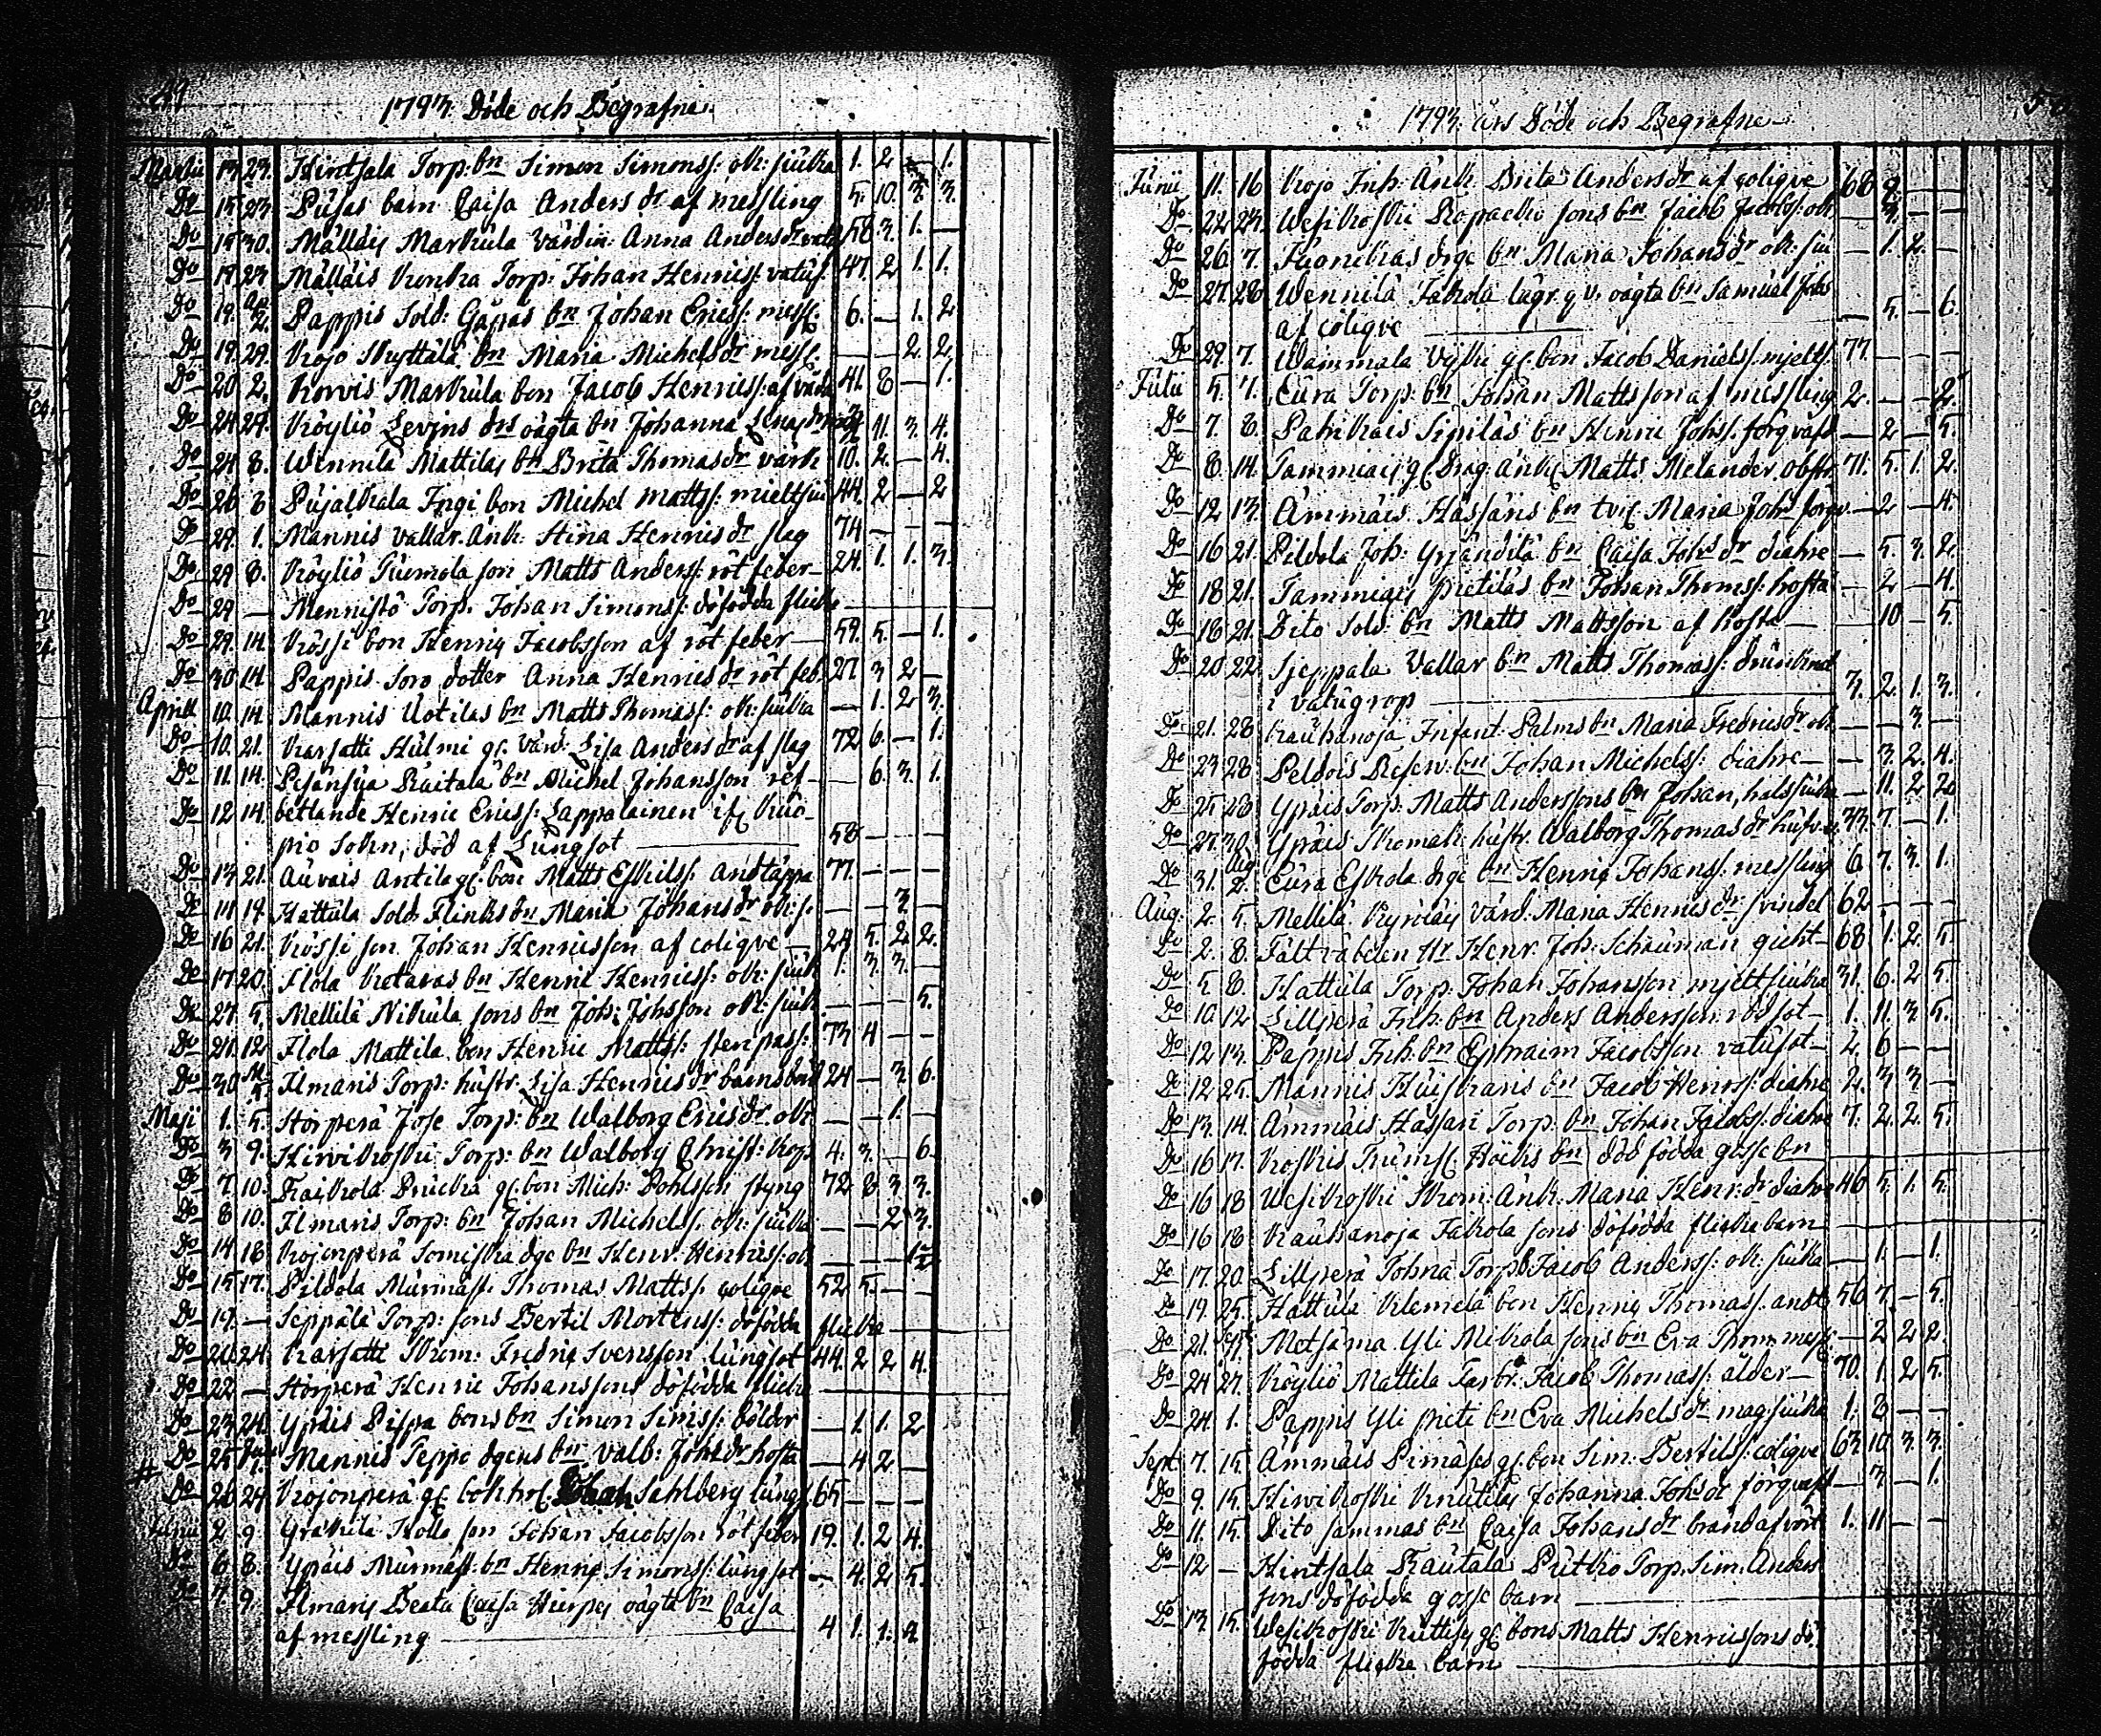 49
1793. Döde och Begrafne.
Martii 13. 23. Hintsala Torp: bn Simon Simonss: ok: siuka 1. 2 — 1.
Do 15 23 Pusas barn Caisa Anders dr af messling 5. 10. 3. 3.
Do 15 30. Mälläis Markula Värdin: Anna Anders dr 58 3. 1. —
Do 19 23 Mälläis Kronka Torp: Johan Henricss: vatus: 47. 2 1. 1.
Do 19. Ap 2. Pappis Sold: Gåpas bn Johan Ericss: messl: 6. — 1. 2
Do 19. 29. Kojo Skyttälä bn Maria Michels dr messl. — — 2. 2.
Do 20 2. Korvis Markula bon Jacob Henricss: af 41. 8 — 1.
Do 24 29. Köyliö Levins drs oägta bn Johanna 11. 3. 4.
Do 24 8. Wennilä Mattilas bn Brita Thomas dr värk 10. 2. — 4.
Do 26 8 Pujalkala Ingi bon Michel Mattss: mieltsiu 44. 2 — 2
Do 29. 1. Mannis vallar. Änk: Stina Henrics dr slag 74 — — —
Do 29 8. Köyliö Tuemola son Matts Anderss: röt feber 24. 1. 1. 3.
Do 29 — Mennistö Torp. Johan Simonss: döfödda flicka
Do 29. 14. Kössi bon Henric Jacobsson af röt feber 59. 5. — 1.
Do 30 14. Pappis Soro dotter Anna Henrics dr röt feb. 27. 3 2 —
Aprill 10. 14. Mannis Uotilas bn Matts Thomass: ok: siuka — 1. 2 3.
Do 10. 21. Karsatti Hulmi gl. Värd: Lisa Anders dr af slag 72 6. — 1.
Do 11. 14. Pisänsuja Raitala bn Michel Johansson ref — 6. 3. 1.
Do 12 14. betlande Henric Ericss: Lappalainen ifr. Kuo-
pio Sokn, död af Lungsot 58. — — —
Do 13 21. Auvais Antila gl: bon Matts Eskilss: Andtäppa 77. — — —
Do 14 19. Hattula Sold. Flinks bn Maria Johans dr ok: s. — — 3. —
Do 16 21. Kössi son Johan Henricsson af coliqve 24 5. 2. 2.
Do 17 20. Ilola Kietavas bn Henric Henricss: ok: siuk 1. 3. 3. —
Do 27. 5. Mellilä Nikula sons bn Joh: Johsson ok: siuk — — — 5.
Do 21. 12 Ilola Mattila bon Henric Mattss: stenpass: 73 4 — —
Do 30 M 5. Ilmaris Torp: hustr. Lisa Henrics dr barnsbörd 24 — 3. 6.
Maji 1. 5. Storperä Jose Torp: bn Walborg Erics dr ok. — — 1. —
Do 3 9. Hirvikoski Torp: bn Walborg Christ: kop. 4. 3. — 6.
Do 7. 10. Raikola gl: bon Mich: Pohlsson styng 72 8 3. 3.
Do 8 10. Ilmaris Torp: bn Johan Michelss. ok: siuka — — 2 3.
Do 14 18 Kojonperä Somiska dgr bn Henr: Henricss: ok — — —
Do 15 17. Pildola Murmäst. Thomas Mattss. coliqve 52 5. — —
Do 19. — Seppälä Torp: sons Bertil Mortenss: döfödda flicka
Do 20. 24. Karsatti Skom: Fredric Svensson lungsot 44. 2 2 4.
Do 22 — Storperä Henric Johanssons döfödda flicka
Do 23 24. Ypäis Pispa bons bn Simon Simss: bölder — 1. 1. 2
# Do 25 Mannis Teppo dgens bn valb: Johs dr hosta — 4 2 —
Do 26 29 Kojonperä gl. bokh: Sahlberg lungs. 65. — — —
Junii 2. 9. Gräkilä Hollo son Johan Jacobsson röt feber 19. 1. 2 4.
Do 6 8. Ypäis Murmäst: bn Henric Simonss: lungsot. — 4. 2 5.
Do 7. 9. Ilmaris Beata Caisa oägta bn Caisa
af messling 4 1. 1. 4.
1793. års Döde och Begrafne
Junii 11. 16 Kojo Inh. Änk. Brita Anders dr af coliqve 68 9. — —
Do 22 23. Wesikoski sons bn Jacob Jacobss: ok. — 3. — —
Do 26 7. dgr bn Maria Johans dr ok: siu — 1. 2. —
Do 27. 28 Wennilä Jakola oägta bn Samuel
af coliqve — 5. — 6.
Do 29. 7. Wammala gl. bon Jacob Danielss. mjelts. 77. — — —
Julii 5. 7. Eura Torp: bn Johan Mattsson af messling 2. — — 2.
Do 7. 8. Pahikais Sipiläs bn Henric Johss. förqvafd — 2 — 5.
Do 8 14. Tammiais gl. Drag. änk. Matts Melander. obstr 71. 5. 1. 2.
Do 12 13. Ämmäis Hässäris bn tvil Maria Joh dr förqv. — 2 — 4.
Do 16 21. Pildola Joh: Yrjändilä bn Caisa Johs dr diahre — 5. 3. 2.
Do 18 21. Tammiais Pietiläs bn Johan Thomss: hosta — 2 — 4.
Do 18 21. Dito Sold: bn Matts Mattsson af hosta — 10 — 5.
Do 20 22 Seppala Vallar bn Matts Thomass: drunknat
i vatugrop 3. 2. 1. 3.
Do 21. 28 Kauhanoja Infant. Palms bn Maria Fredrics dr ok — — 3. —
Do 23 28 Peldois Reserv: bn Johan Michelss: diahre — 3. 2. 4.
Do 25 28 Ypäis Torp. Matts Anderssons bn Johan, halssiuka — 11. 2 2
Do 27. 30. Ypäis Skomak. hustr. Walborg Thomas dr 33. 7. — 1.
Do 31. Aug 2. Eura Eskola dgr bn Henric Johanss: messling 6 7. 3. 1.
Aug. 2. 5. Mellilä Kyröläs Värd. Maria Henrics dr svindel 62 — — —
Do 2. 8. Fältväbelen Hr Henr. Joh: Schauman gicht 68 1. 2. 5.
Do 5 8. Hattula Torp. Johan Johansson mjeltsiuka 31. 6. 2 5
Do 10. 12 Lillperä Inh. bn Anders Andersson rödsot 1. 11. 3. 5.
Do 12 13. Pappis Inh. bn Ephraim Jacobsson vatusot 2. 6 — —
Do 12 25. Mannis Huiskans bn Jacob Henrss: diahre 2. 3. 3. —
Do 13. 14. Ämmäis Hässäri Torp. bn Johan Jacobss: diahre 7. 2. 2. 5.
Do 16 17. Koskis bn död födda gosse bn
Do 16 18 Wesikoski Skom. Änk: Maria Henr: dr diahre 46 5. 1. 5.
Do 16 18 Kauhanoja Jakola sons döfödda flickebarn
Do 17. 20. Lillperä Torp. Jacob Anderss: ok: siuka — 1. — 1.
Do 19. 25. Hattula Vilemelä bon Henric Thomass. andt. 56 7. — 5.
Do 21. Metsäma Yli Nikkola sons bn Eva Thom: messl: — 2 2 2.
Do 24 27. Köyliö Mattila Farbr. Jacob Thomass: ålder 70. 1. 2 5.
Do 24 1. Pappis Yli Pieti bn Eva Michels dr magsiuka 1. 8 — —
Sept. 7. 15. Ämmäis Pimäses gl. bon Sim. Bertilss: coliqve 63. 10. 3. 3.
Do 9. 15. Hirvikoski Knutilas Johanna Johs dr förqvafd — 3 — 1.
Do 11. 15. Dito sammas bn Caisa Johans dr 1. 11 — —
Do 12 — Hintsala Rautala Torp. Sim. Anders
sons döfödda gosse barn
Do 13. 15. Wesikoski Kuttis gl. bons Matts Henricssons dö
födda flicke barn